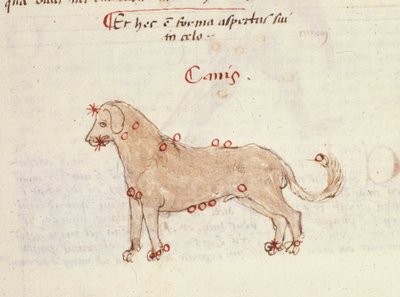 ¶Et hec ē forma aspectus sui
in celo·
Canis·